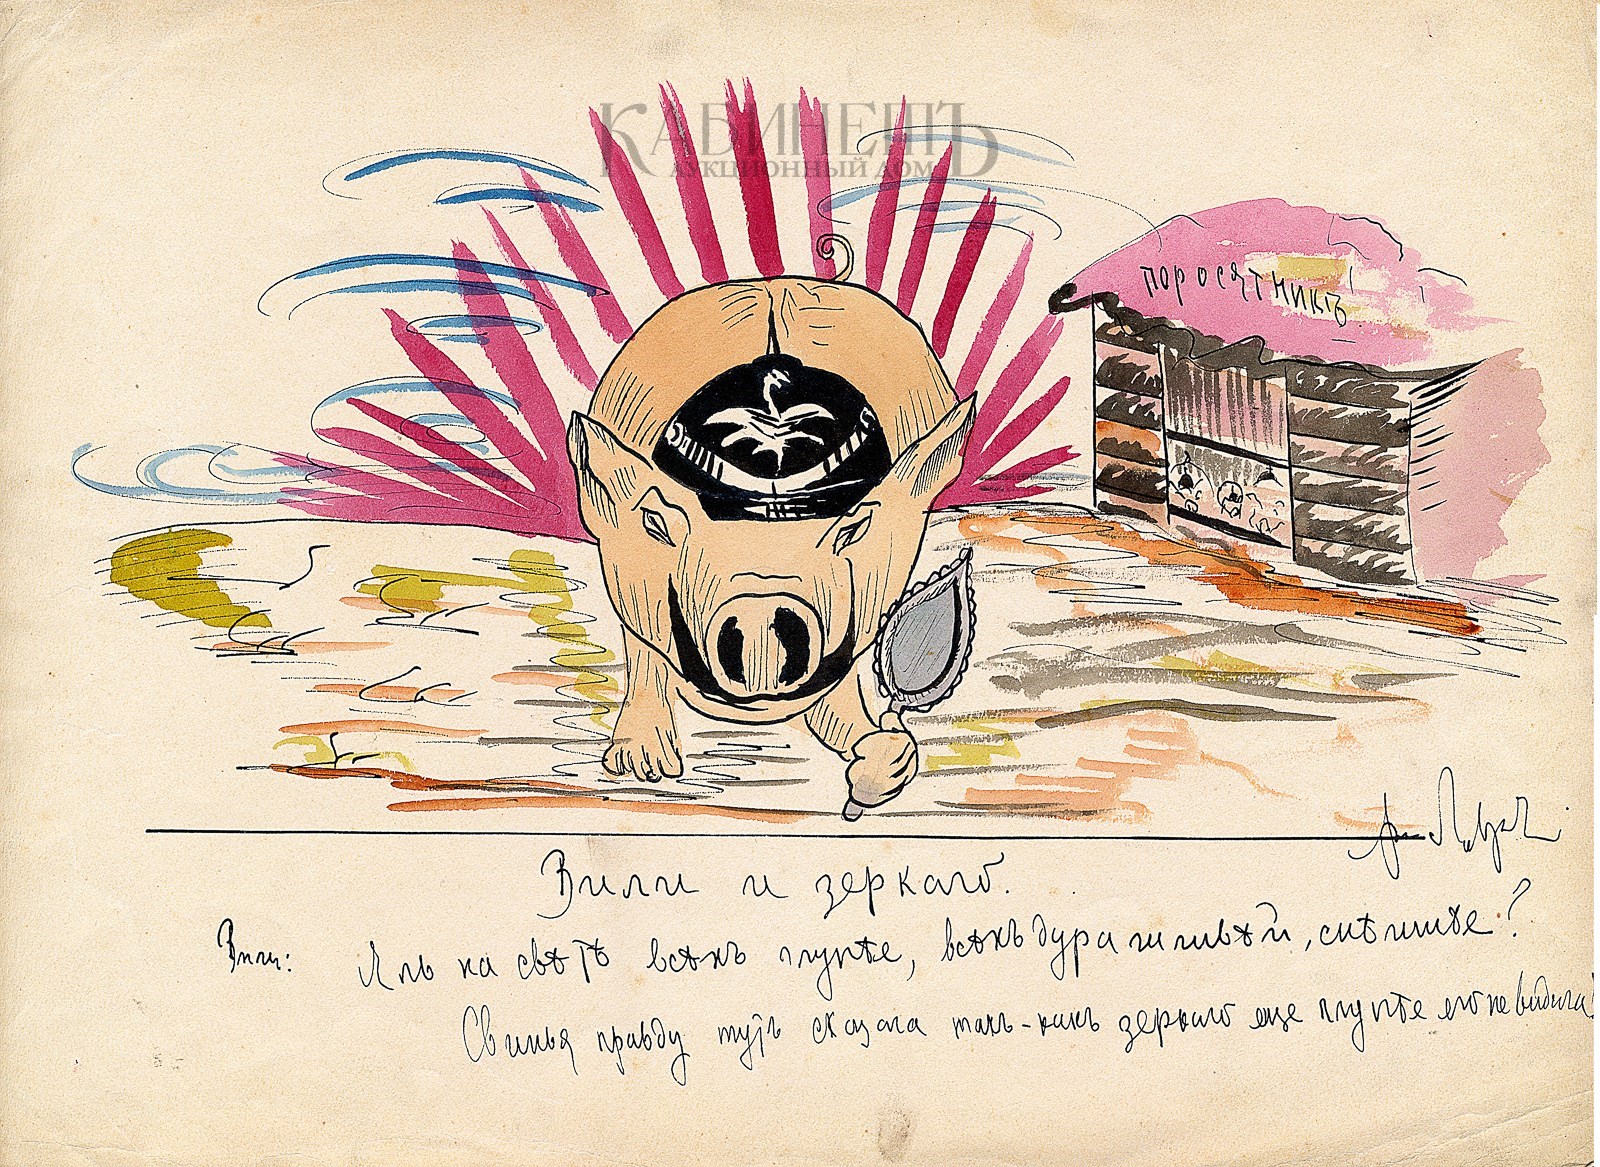 КАБИНЕТЪ
АУКЦИОННЫЙ ДОМ
поросятникъ.
Вили и зеркало.
Вили: Я ль на свѣтѣ всѣхъ глупѣе, всѣхъ дурашливѣй, смѣшнѣе?
Свинья правду тутъ сказала такъ-какъ зеркало еще глупѣе его не видила!